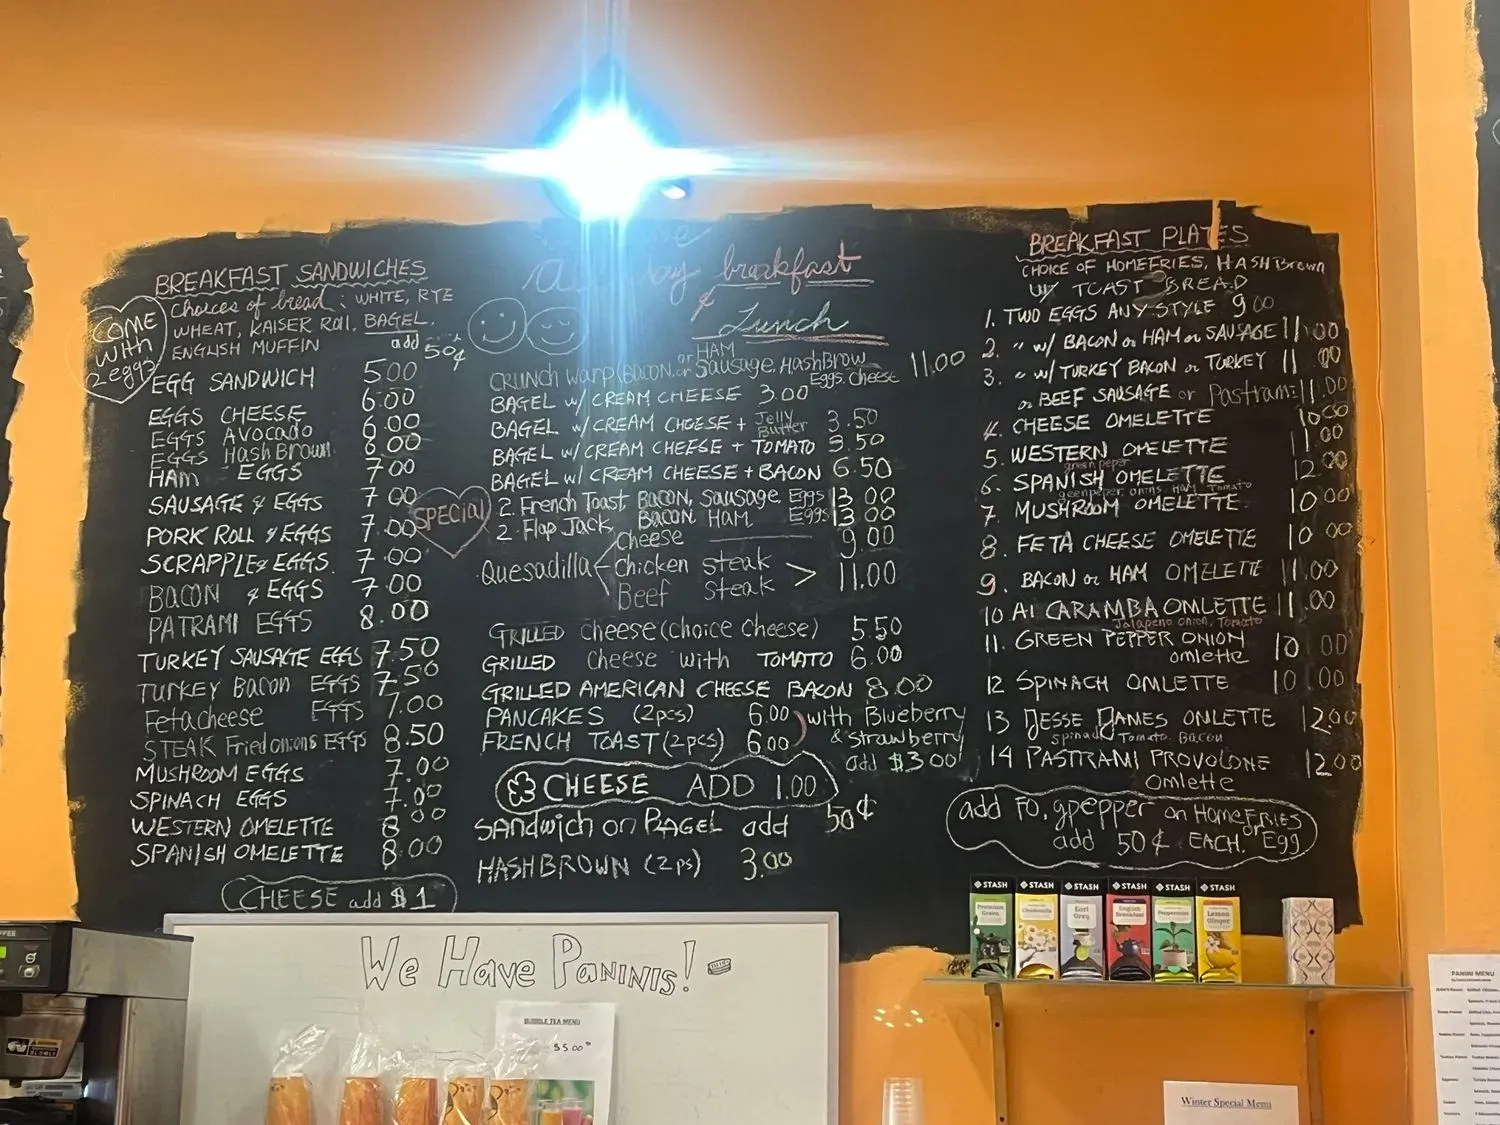 BREAKFAST SANDWICHES
COME with 2 eggs
Choices of bread: WHITE, RYE
WHEAT, KAISER Roll, BAGEL,
ENGLISH MUFFIN add 50¢
EGG SANDWICH 5.00
EGGS CHEESE 6.00
EGGS AVOCADO 6.00
EGGS Hash Brown 8.00
HAM EGGS 7.00
SAUSAGE & EGGS 7.00
PORK ROLL & EGGS 7.00
SCRAPPLE & EGGS. 7.00
BACON & EGGS 7.00
PATRAMI EGGS 8.00
TURKEY SAUSAGE EGGS 7.50
TURKEY BACON EGGS 7.50
Feta cheese EGGS 7.00
STEAK Fried onions EGGS 8.50
MUSHROOM EGGS 7.00
SPINACH EGGS 7.00
WESTERN OMELETTE 8.00
SPANISH OMELETTE 8.00
CHEESE add $1
All day breakfast
&
Lunch
or HAM
CRUNCH Warp (BACON or Sausage, Hash Brow 11.00
Eggs, Cheese
BAGEL w/ CREAM CHEESE 3.00
BAGEL w/ CREAM CHEESE + Jelly Butter 3.50
BAGEL w/ CREAM CHEESE + TOMATO 3.50
BAGEL w/ CREAM CHEESE + BACON 6.50
SPECIAL
2. French Toast, BACON, Sausage, Eggs 13.00
2. Flap Jack, BACON HAM Eggs 13.00
Cheese 9.00
Quesadilla < Chicken steak > 11.00
Beef steak
GRILLED cheese (choice cheese) 5.50
GRILLED cheese with TOMATO 6.00
GRILLED AMERICAN CHEESE BACON 8.00
PANCAKES (2pcs) 6.00
FRENCH TOAST (2pcs) 6.00
with Blueberry
& strawberry
add $3.00
CHEESE ADD 1.00
SANDWICH on BAGEL add 50¢
HASHBROWN (2ps) 3.00
BREAKFAST PLATES
CHOICE OF HOMEFRIES, HASH Brown
W/ TOAST BREAD
1. TWO EGGS ANY-STYLE 9.00
2. " w/ BACON or HAM or SAUSAGE 11.00
3. " w/ TURKEY BACON or TURKEY 11.00
or BEEF SAUSAGE or Pastrami 11.00
4. CHEESE OMELETTE 10.00
5. WESTERN OMELETTE 11.00
green peper
6. SPANISH OMELETTE 12.00
7. MUSHROOM OMELETTE 10.00
8. FETA CHEESE OMELETTE 10.00
9. BACON or HAM OMELETTE 11.00
10 AI CARAMBA OMLETTE 11.00
Jalapeno, Onion, Tomato
11. GREEN PEPPER ONION 10.00
omlette
12 SPINACH OMLETTE 10.00
13 JESSE JAMES OMLETTE 12.00
Spinach Tomato Bacon
14 PASTRAMI PROVOLONE 12.00
Omlette
add FO, gpepper on HOMEFRIES
or Egg
add 50¢ EACH.
We Have Paninis!
BUBBLE TEA MENU
$5.00
STASH
Premium Green
STASH
Chamomile
STASH
Earl Grey
STASH
English Breakfast
STASH
Peppermint
STASH
Lemon Ginger
PANINI MENU
Winter Special Menu